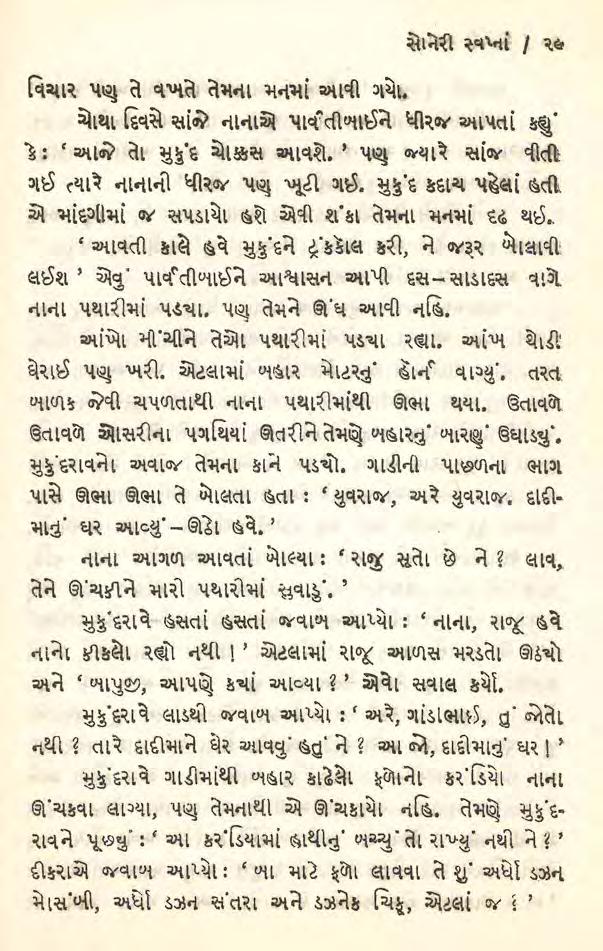 સોનેરી સ્વપ્નાં / ૨૯
વિચાર પણ તે વખતે તેમના મનમાં આવી ગયો.
ચોથા દિવસે સાંજે નાનાએ પાર્વતીબાઈને ધીરજ આપતાં કહ્યું
કે : ‘ આજે તો મુકુંદ ચોક્કસ આવશે. ’ પણ જ્યારે સાંજ વીતી
ગઈ ત્યારે નાનાની ધીરજ પણ ખૂટી ગઈ. મુકુંદ કદાચ પહેલાં હતી
એ માંદગીમાં જ સપડાયો હશે એવી શંકા તેમના મનમાં દૃઢ થઈ.
‘ આવતી કાલે હવે મુકુંદને ટ્રંકકૉલ કરી, ને જરૂર બોલાવી
લઈશ ’ એવું પાર્વતીબાઈને આશ્વાસન આપી દસ–સાડાદસ વાગે
નાના પથારીમાં પડ્યા. પણ તેમને ઊંઘ આવી નહિ.
આંખો મીંચીને તેઓ પથારીમાં પડ્યા રહ્યા. આંખ થોડી
ઘેરાઈ પણ ખરી. એટલામાં બહાર મોટરનું હૉર્ન વાગ્યું. તરત
બાળક જેવી ચપળતાથી નાના પથારીમાંથી ઊભા થયા. ઉતાવળે
ઉતાવળે ઓસરીના પગથિયાં ઊતરીને તેમણે બહારનું બારણું ઉઘાડ્યું.
મુકુંદરાવનો અવાજ તેમના કાને પડ્યો. ગાડીની પાછળના ભાગ
પાસે ઊભા ઊભા તે બોલતા હતા : ‘ યુવરાજ, અરે યુવરાજ. દાદી-
માનું ઘર આવ્યું – ઊઠો હવે. ’
નાના આગળ આવતાં બોલ્યા : ‘ રાજુ સૂતો છે ને ? લાવ,
તેને ઊંચકીને મારી પથારીમાં સુવાડું. ’
મુકુંદરાવે હસતાં હસતાં જવાબ આપ્યો : ‘ નાના, રાજૂ હવે
નાનો કીકલો રહ્યો નથી ! ’ એટલામાં રાજૂ આળસ મરડતો ઊઠ્યો
અને ‘ બાપુજી, આપણે ક્યાં આવ્યા ? ’ એવો સવાલ કર્યો.
મુકુંદરાવે લાડથી જવાબ આપ્યો : ‘ અરે, ગાંડાભાઈ, તું જોતો
નથી ? તારે દાદીમાને ઘેર આવવું હતું ને ? આ જો, દાદીમાનું ઘર ! ’
મુકુંદરાવે ગાડીમાંથી બહાર કાઢેલો ફળોનો કરંડિયો નાના
ઊંચકવા લાગ્યા, પણ તેમનાથી એ ઊંચકાયો નહિ. તેમણે મુકુંદ-
રાવને પૂછ્યું : ‘ આ કરંડિયામાં હાથીનું બચ્ચું તો રાખ્યું નથી ને ? ’
દીકરાએ જવાબ આપ્યો : ‘ બા માટે ફળો લાવવા તે શું અર્ધો ડઝન
મોસંબી, અર્ધો ડઝન સંતરા અને ડઝનેક ચિકૂ, એટલાં જ ? ’